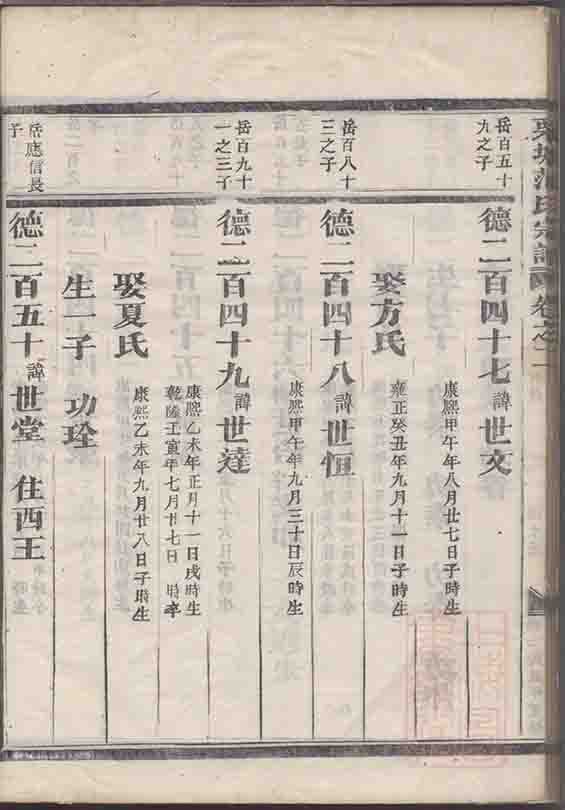 氏宗譜 卷之二
岳百五十
九之子
德二百四十七 諱 世文
康熙甲午年八月廿七日子時生
娶方氏
雍正癸丑年九月十一日子時生
岳百八十
三之子
德二百四十八 諱 世恒
康熙甲午年九月三十日辰時生
岳百九十
一之三子
德二百四十九 諱 世達
康熙乙未年正月十一日戌時生
乾隆壬寅年七月廿七日 時卒
娶夏氏
康熙乙未年九月廿八日子時生
生一子 功琻
岳應信長
子
德二百五十 諱 世堂 住西王